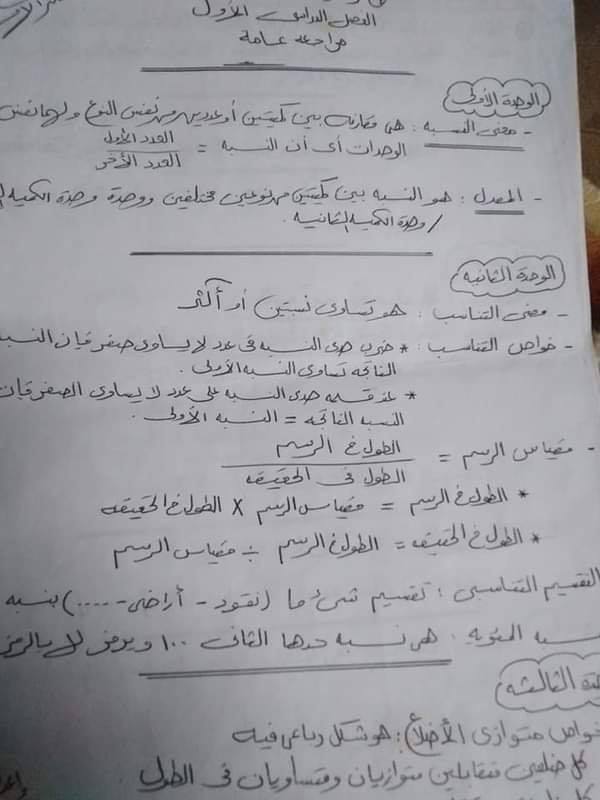 الفصل الدراسى الأول
مراجعه عامة
الوحدة الأولى
- معنى النسبه : هى مقارنه بين كميتين أو عددين من نفس النوع ولها نفس
الوحدات أى أن النسبه = العدد الأول / العدد الآخر
- المعدل : هو النسبه بين كميتين من نوعين مختلفين ووحدة وحدة الكميه
/ وحدة الكميه الثانيه .
الوحدة الثانيه
- معنى التناسب : هو تساوى نسبتين أو أكثر
- خواص التناسب : * ضرب حدى النسبه فى عدد لا يساوى صفر فإن النسبه
الناتجه تساوى النسبه الأولى .
* عند قسمه حدى النسبه على عدد لا يساوى الصفر فإن
النسبه الناتجه = النسبه الأولى .
- مقياس الرسم = الطول فى الرسم / الطول فى الحقيقه
* الطول فى الرسم = مقياس الرسم × الطول فى الحقيقه
* الطول فى الحقيقه = الطول فى الرسم ÷ مقياس الرسم
التقسيم التناسبى : تقسيم شئ ما (نقود - أراضى - ....) بنسبه
سبه المئويه : هى نسبه حدها الثانى ١٠٠ ويرمز لها بالرمز
دة الثالثه
خواص متوازى الأضلاع : هو شكل رباعى فيه
كل ضلعين متقابلين متوازيان ومتساويان فى الطول